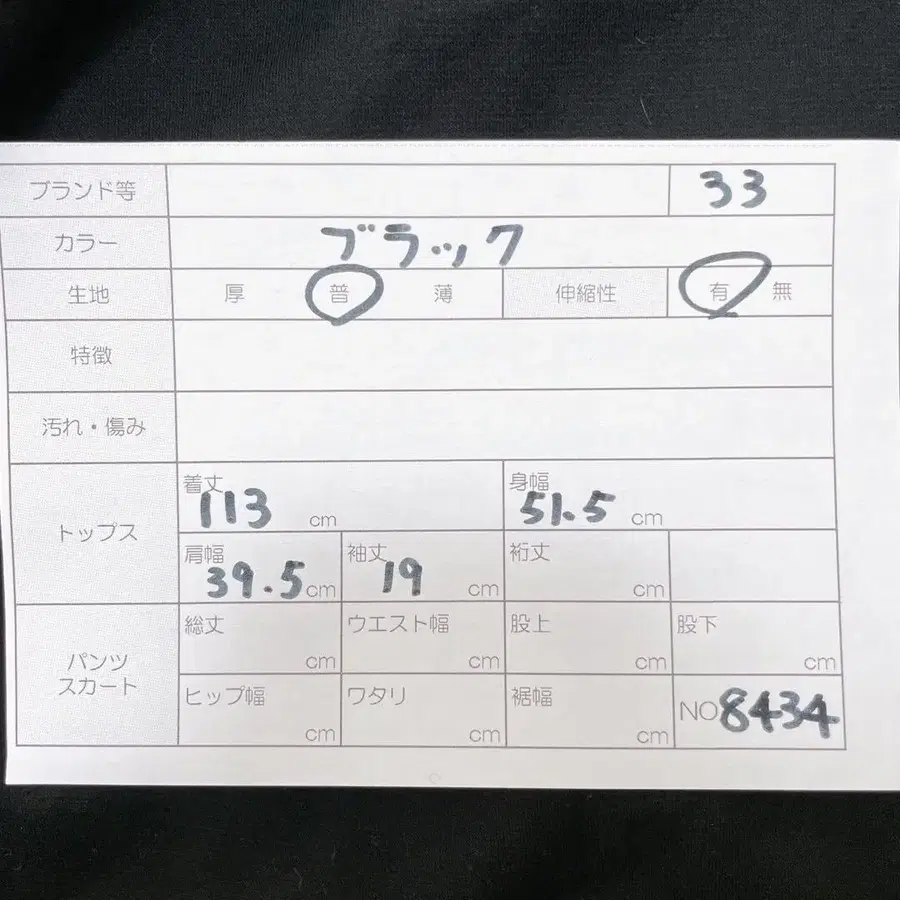 ブランド等 33
カラー ブラック
生地 厚 普 薄 伸縮性 有 無
特徴
汚れ・傷み
トップス
着丈 113 cm 身幅 51.5 cm
肩幅 39.5 cm 袖丈 19 cm 裄丈 cm
パンツ
スカート
総丈 cm ウエスト幅 cm 股上 cm 股下 cm
ヒップ幅 cm ワタリ cm 裾幅 cm NO 8434